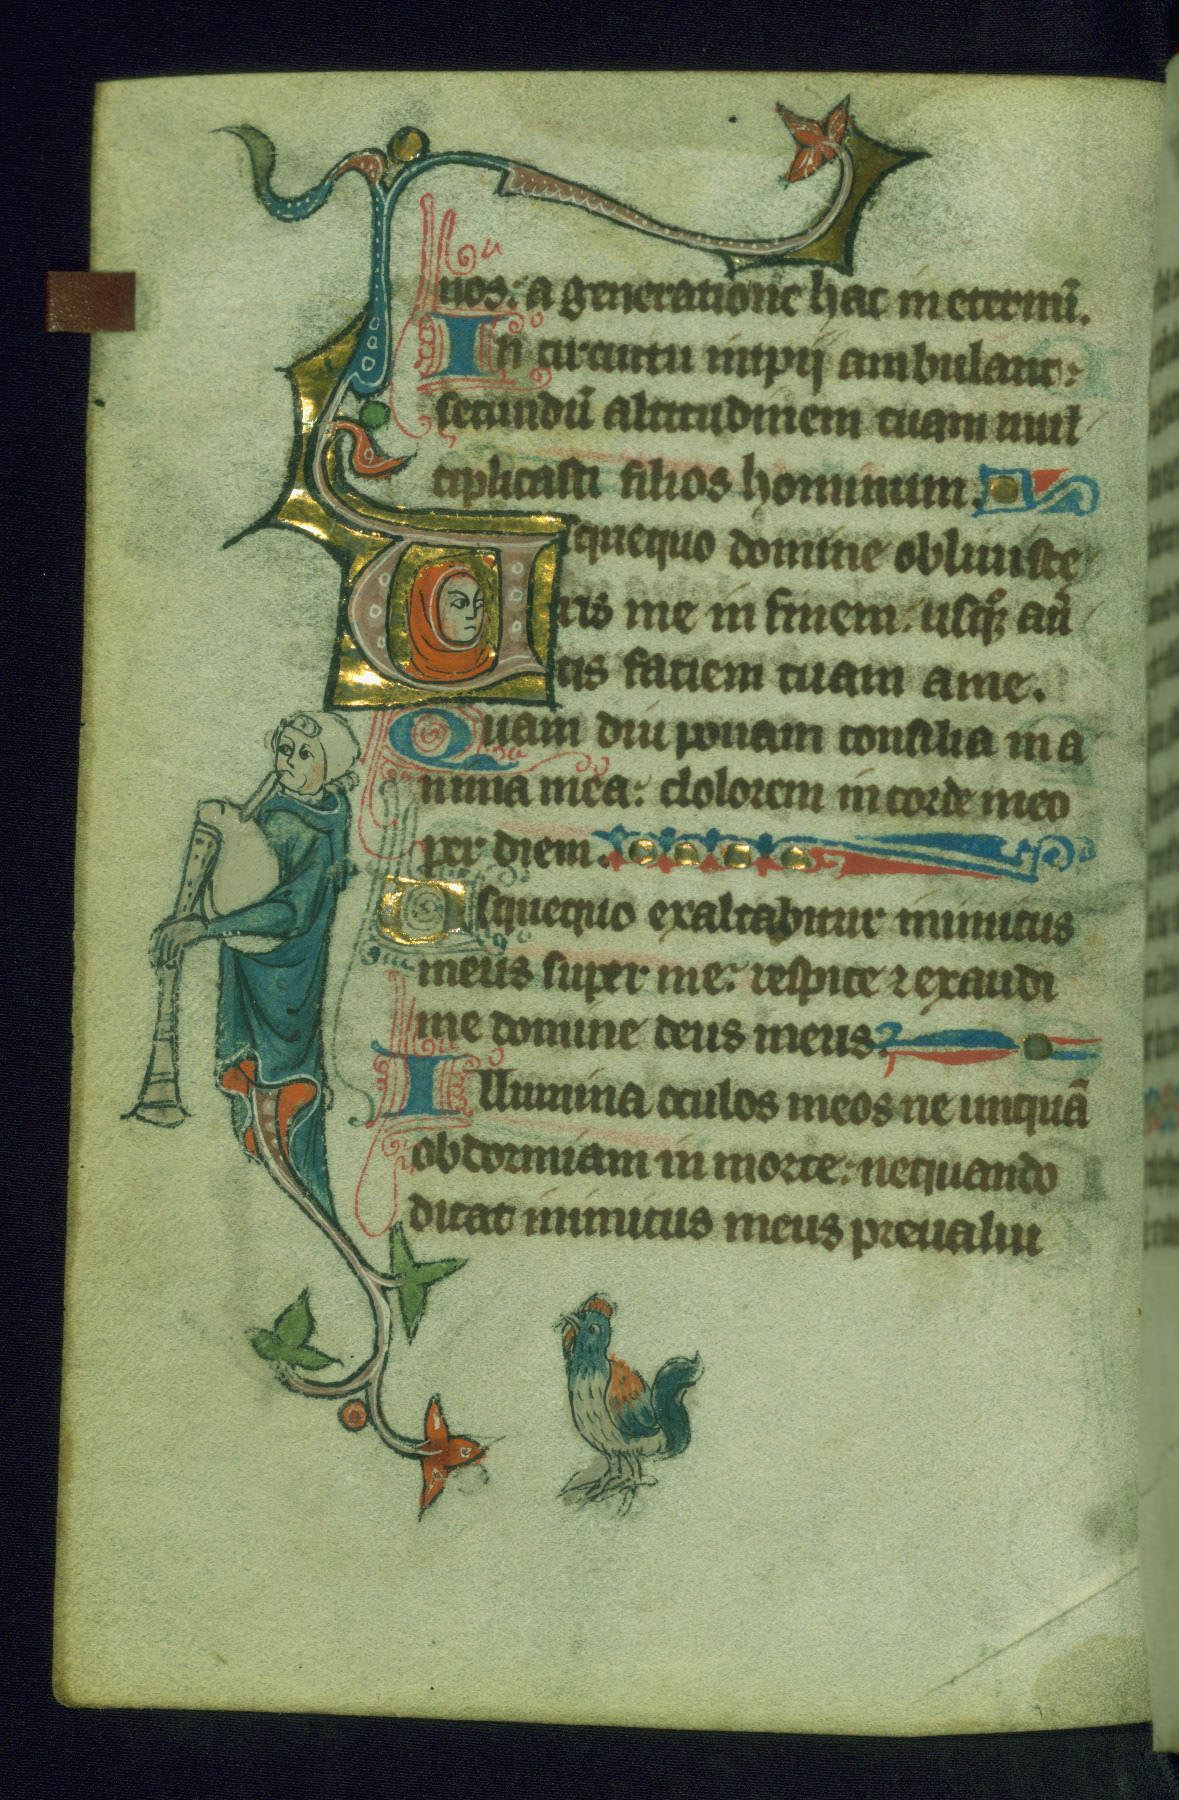 nos: a generatione hac in eternū.
In circuitu inpij ambulant:
secundū altitudinem tuam mul
tiplicasti filios hominum.
Usquequo domine obliuisce
ris me in finem. usq; auer
tis faciem tuam a me.
Quam diu ponam consilia in a
nima mea: dolorem in corde meo
per diem.
Usquequo exaltabitur inimicus
meus super me: respice ⁊ exaudi
me domine deus meus.
Illumina oculos meos ne unquā
obdormiam in morte: nequando
dicat inimicus meus preualui